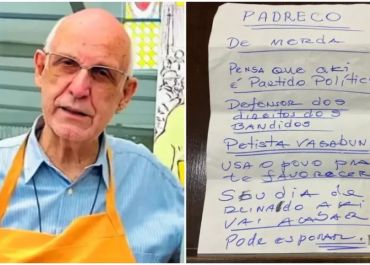 PADRECO
DE MERDA
PENSA QUE AKI
É PARTIDO POLÍTIC
DEFENSOR DOS
DIREITOS DOS
BANDIDOS
PETISTA VAGABUN
USA O POVO PRA
TE FAVORECER
SEU DIA DE
REINADO AKI
VAI ACABAR
PODE ESPERAR.